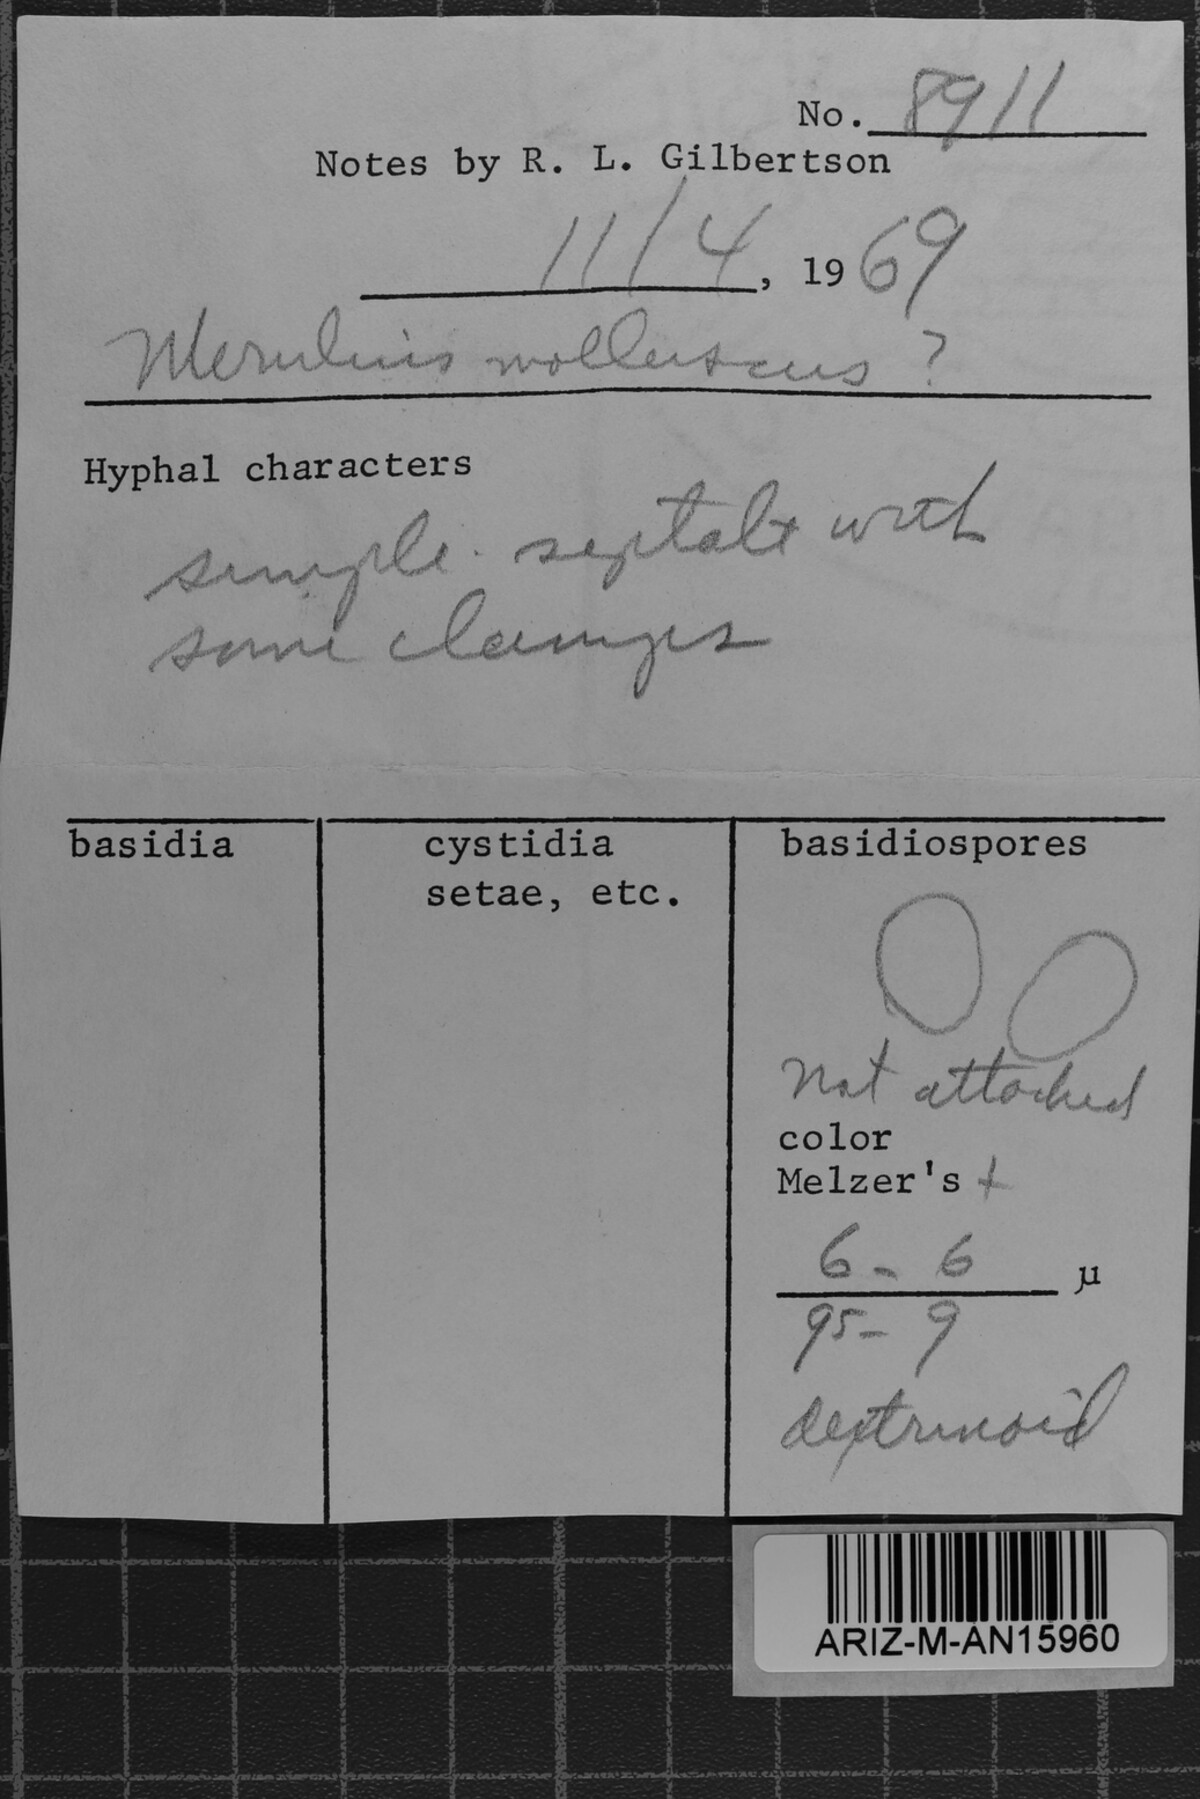 No. 8911
Notes by R. L. Gilbertson
11/4, 1969
Merulius molluscus ?
Hyphal characters
simple septate with
some clamps
basidia
cystidia
setae, etc.
basidiospores
not attached
color
Melzer's +
6 - 6 µ
95 - 9
dextrinoid
ARIZ-M-AN15960